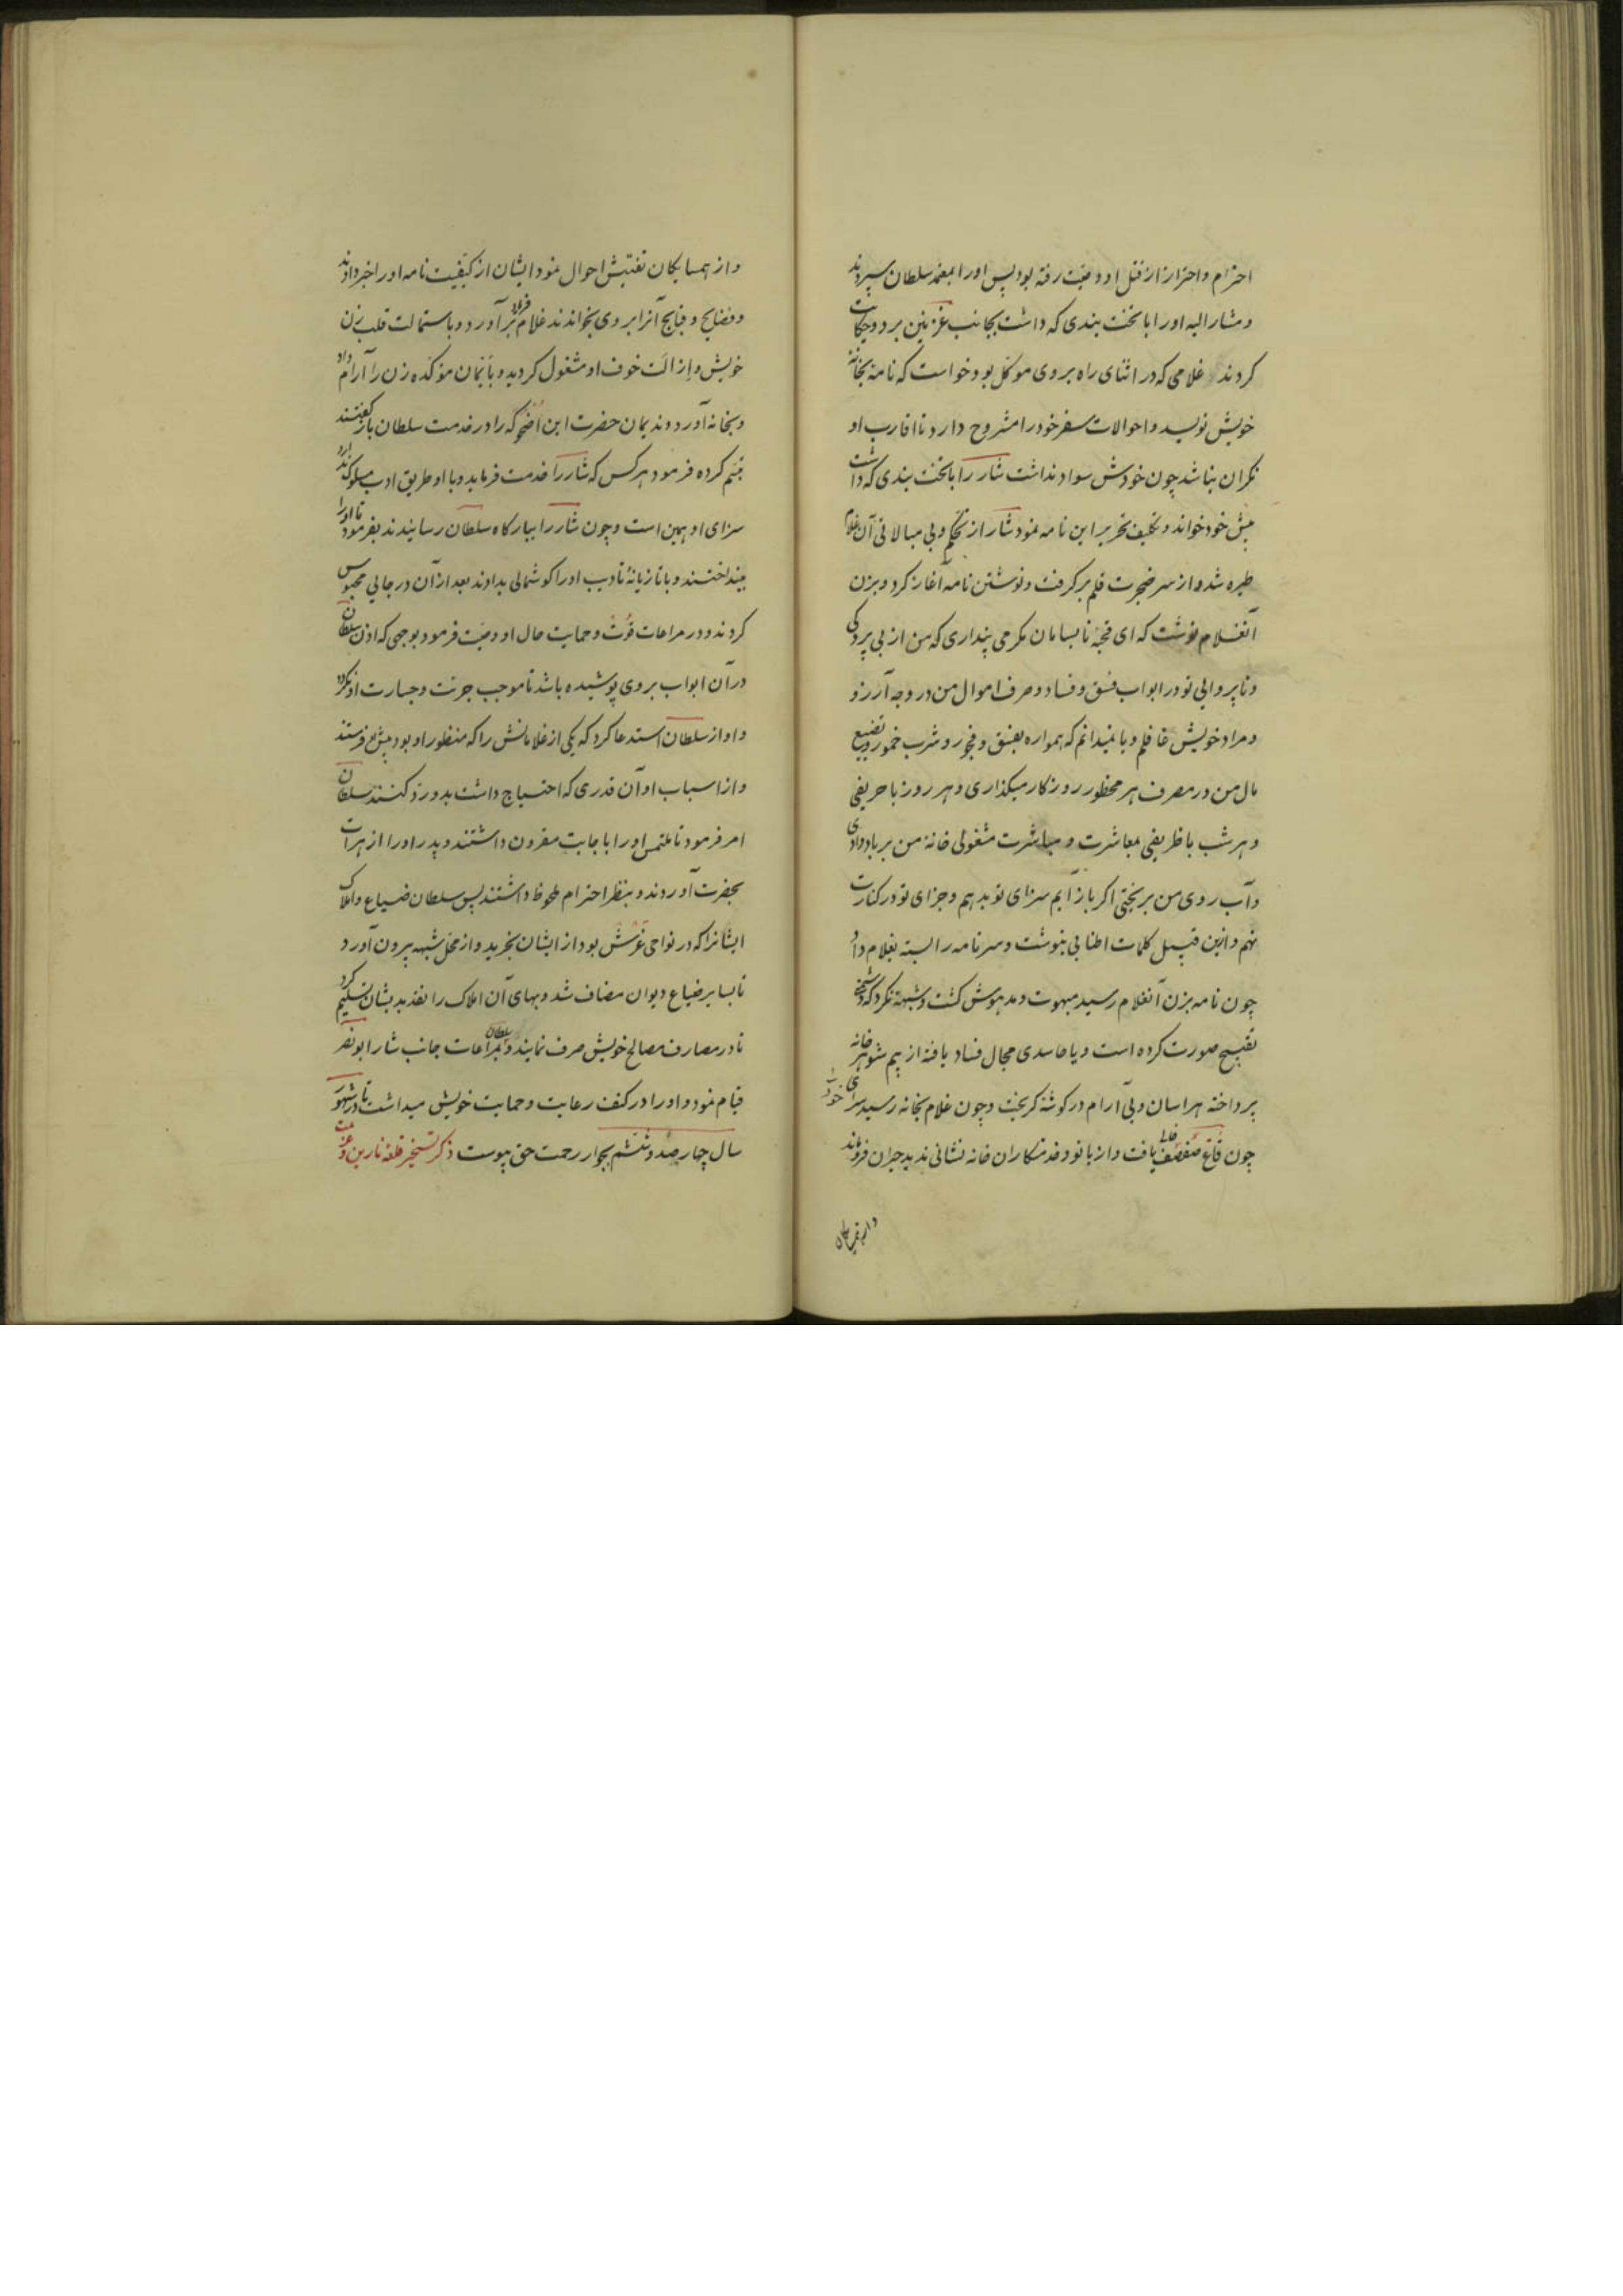 احترام و احتراز از قتل او وصیت رفته بود پس او را بمعتمد سلطان سپردند
و مشار الیه او را با تخت بندی که داشت بجانب غزنین برد و حکایت
کردند غلامی که در اثنای راه بر وی موکل بود خواست که نامه بخانه
خویش نویسد و احوالات سفر خود را مشروح دارد تا اقارب او
نگران نباشد چون خودش سواد نداشت شار را با تخت بندی که داشت
پیش خود خواند و تکلیف تحریر این نامه نمود شار از تحکم و بی مبالاتی آن غلام
طیره شد و از سر ضجرت قلم بر گرفت و نوشتن نامه آغاز کرد و بزن
آنغلام نوشت که ای قحبه نابسامان مگر می پنداری که من از بی پردگی
و ناپروایی تو در ابواب فسق و فساد و صرف اموال من در وجه آرزو
و مراد خویش غافلم و یا نمیدانم که همواره بفسق و فجور و شرب خمور و تضییع
مال من در مصرف هر محظور روزگار میگذاری و هر روز با حریفی
و هر شب با ظریفی بمعاشرت و مباشرت مشغولی خانه من بر باد دادی
و آب روی من بریختی اگر باز آیم سزای تو بدهم و جزای تو در کنارت
نهم و ازین قبیل کلمات اطنابی بنوشت و سر نامه را بسته بغلام داد
چون نامه بزن آنغلام رسید مبهوت و مدهوش گشت و شبهه نکرد که دشمنی
تقبیح صورت کرده است و یا حاسدی مجال فساد یافته از بیم شوهر خانه
پرداخته هراسان و بی آرام در گوشه گریخت و چون غلام بخانه رسید سرای خود را
چون قاع صفصف خالی یافت و از بانو و خدمتکاران خانه نشانی ندید حیران فروماند
و از همسایگان
و از همسایگان تفتیش احوال نمود ایشان از کیفیت نامه او را خبر دادند
و فضایح و قبایح آنرا بر وی بخواندند غلام فریاد برآورد و باستمالت قلب زن
خویش و ازالت خوف او مشغول گردید و بأیمان موکده زن را آرام داد
و بخانه آورد و ندیمان حضرت این اضحوکه را در خدمت سلطان باز گفتند
تبسم کرده فرمود هر کس که شار را خدمت فرماید و با او طریق ادب مسلوک ندارد
سزای او همین است و چون شار را ببارگاه سلطان رسانیدند بفرمود تا او را
بینداختند و با تازیانه تادیب او را گوشمالی بدادند بعد از آن در جایی محبوس
کردند و در مراعات قوت و حمایت حال او وصیت فرمود بوجهی که اذن سلطان
در آن ابواب بر وی پوشیده باشد تا موجب جرئت و جسارت او نگردد
و او از سلطان استدعا کرد که یکی از غلامانش را که منظور او بود پیش او فرستند
و از اسباب او آن قدری که احتیاج داشت بدو رد کنند سلطان
امر فرمود تا ملتمس او را باجابت مقرون داشتند و پدر او را از هرات
بحضرت آوردند و بنظر احترام ملحوظ داشتند پس سلطان ضیاع و املاک
ایشانرا که در نواحی غرشش بود از ایشان بخرید و از محل شبهه بیرون آورد
تا بسایر ضیاع دیوان مضاف شد و بهای آن املاک را نقد بدیشان تسلیم کرد
تا در مصارف مصالح خویش صرف نمایند و سلطان بمراعات جانب شار ابو نصر
قیام نمود و او را در کنف رعایت و حمایت خویش میداشت تا در شهور
سال چهار صد و ششم بجوار رحمت حق پیوست ذکر تسخیر قلعه نارین و